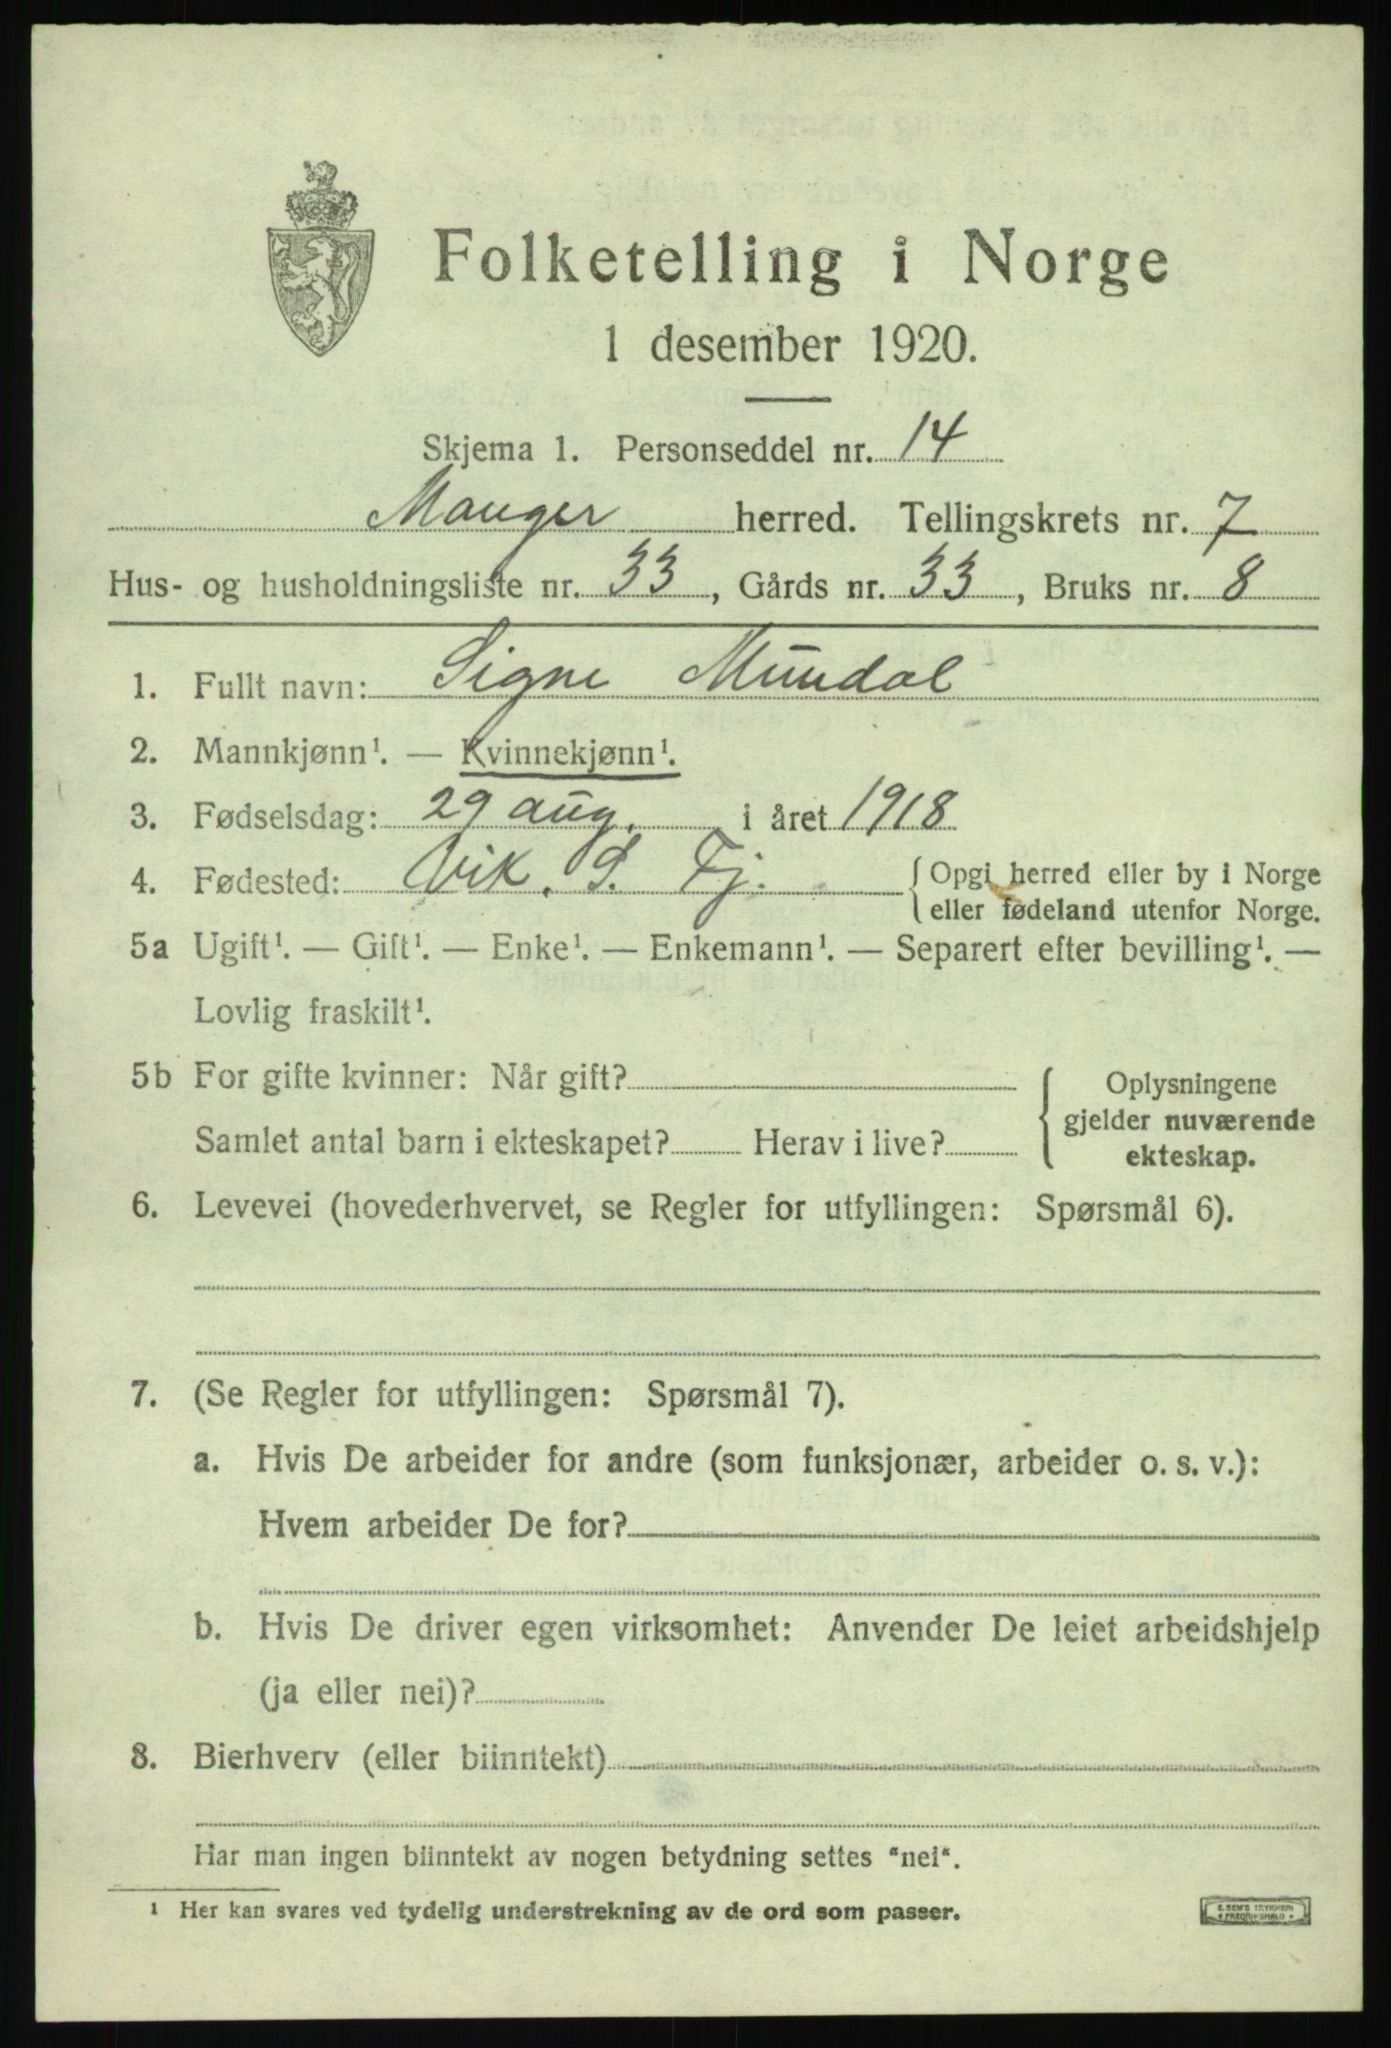 Folketelling i Norge
1 desember 1920.
Skjema 1. Personseddel nr. 14
Manger herred. Tellingskrets nr. 7
Hus- og husholdningsliste nr. 33, Gårds nr. 33, Bruks nr. 8
1. Fullt navn: Signe Mundal
2. Mannkjønn¹. — Kvinnekjønn¹.
3. Fødselsdag: 29 aug. i året 1918
4. Fødested: Vik, S. Fj. { Opgi herred eller by i Norge
eller fødeland utenfor Norge.
5a Ugift¹. — Gift¹. — Enke¹. — Enkemann¹. — Separert efter bevilling¹. —
Lovlig fraskilt¹.
5b For gifte kvinner: Når gift?
Samlet antal barn i ekteskapet? Herav i live?
{ Oplysningene
gjelder nuværende
ekteskap.
6. Levevei (hovederhvervet, se Regler for utfyllingen: Spørsmål 6).
7. (Se Regler for utfyllingen: Spørsmål 7).
a. Hvis De arbeider for andre (som funksjonær, arbeider o. s. v.):
Hvem arbeider De for?
b. Hvis De driver egen virksomhet: Anvender De leiet arbeidshjelp
(ja eller nei)?
8. Bierhverv (eller biinntekt)
Har man ingen biinntekt av nogen betydning settes "nei".
¹ Her kan svares ved tydelig understrekning av de ord som passer.
E. SEM'S TRYKKERI
FREDRIKSHALD